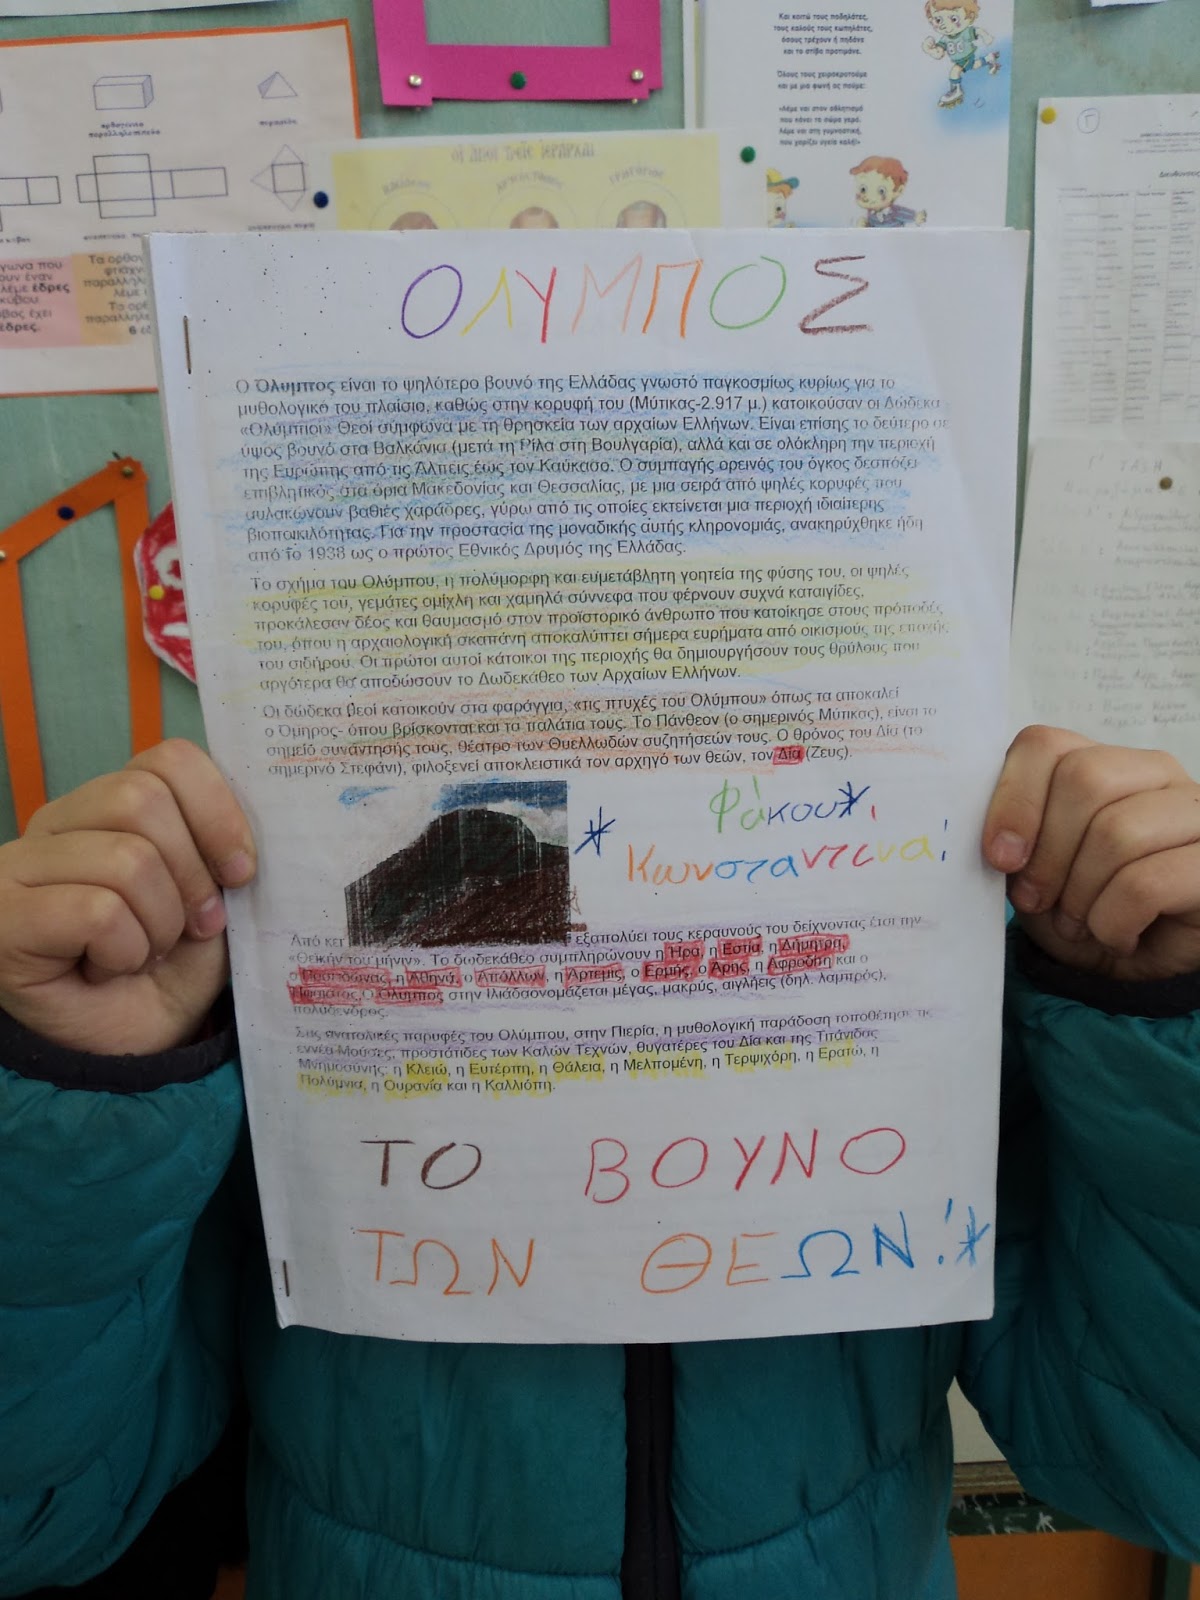 Και κοιτώ τους ποδηλάτες,
τους καλούς τους κωπηλάτες,
όσους τρέχουν ή πηδάνε
και το στίβο προτιμάνε.
Όλους τους χειροκροτούμε
και με μια φωνή ας πούμε:
«Πάμε ναι στον αθλητισμό
που κάνει το σώμα γερό.
Πάμε ναι στη γυμναστική,
που χαρίζει υγεία καλή!»
ορθογώνιο
παραλληλεπίπεδο
πυραμίδα
ΟΙ ΑΓΙΟΙ ΤΡΕΙΣ ΙΕΡΑΡΧΑΙ
Γ
Διευθύνσεις
έδρες
κύβου
έχει
έδρες.
ΟΛΥΜΠΟΣ
Ο Όλυμπος είναι το ψηλότερο βουνό της Ελλάδας γνωστό παγκοσμίως κυρίως για το
μυθολογικό του πλαίσιο, καθώς στην κορυφή του (Μύτικας-2.917 μ.) κατοικούσαν οι Δώδεκα
«Ολύμπιοι» Θεοί σύμφωνα με τη θρησκεία των αρχαίων Ελλήνων. Είναι επίσης το δεύτερο σε
ύψος βουνό στα Βαλκάνια (μετά τη Ρίλα στη Βουλγαρία), αλλά και σε ολόκληρη την περιοχή
της Ευρώπης από τις Άλπεις έως τον Καύκασο. Ο συμπαγής ορεινός του όγκος δεσπόζει
επιβλητικός στα όρια Μακεδονίας και Θεσσαλίας, με μια σειρά από ψηλές κορυφές που
αυλακώνουν βαθιές χαράδρες, γύρω από τις οποίες εκτείνεται μια περιοχή ιδιαίτερης
βιοποικιλότητας. Για την προστασία της μοναδικής αυτής κληρονομιάς, ανακηρύχθηκε ήδη
από το 1938 ως ο πρώτος Εθνικός Δρυμός της Ελλάδας.
Το σχήμα του Ολύμπου, η πολύμορφη και ευμετάβλητη γοητεία της φύσης του, οι ψηλές
κορυφές του, γεμάτες ομίχλη και χαμηλά σύννεφα που φέρνουν συχνά καταιγίδες,
προκάλεσαν δέος και θαυμασμό στον προϊστορικό άνθρωπο που κατοίκησε στους πρόποδές
του, όπου η αρχαιολογική σκαπάνη αποκαλύπτει σήμερα ευρήματα από οικισμούς της εποχής
του σιδήρου. Οι πρώτοι αυτοί κάτοικοι της περιοχής θα δημιουργήσουν τους θρύλους που
αργότερα θα αποδώσουν το Δωδεκάθεο των Αρχαίων Ελλήνων.
Οι δώδεκα θεοί κατοικούν στα φαράγγια, «τις πτυχές του Ολύμπου» όπως τα αποκαλεί
ο Όμηρος- όπου βρίσκονται και τα παλάτια τους. Το Πάνθεον (ο σημερινός Μύτικας), είναι το
σημείο συνάντησής τους, θέατρο των θυελλωδών συζητήσεών τους. Ο θρόνος του Δία (το
σημερινό Στεφάνι), φιλοξενεί αποκλειστικά τον αρχηγό των θεών, τον Δία (Ζευς).
Φάκου*,
Κωνσταντίνα!
Από κει εξαπολύει τους κεραυνούς του δείχνοντας έτσι την
«Θεικήν του μήνιν». Το δωδεκάθεο συμπληρώνουν η Ήρα, η Εστία, η Δήμητρα,
ο Ποσειδώνας, η Αθηνά, ο Απόλλων, η Άρτεμις, ο Ερμής, ο Άρης, η Αφροδίτη και ο
Ήφαιστος.Ο Όλυμπος στην Ιλιάδαονομάζεται μέγας, μακρύς, αιγλήεις (δηλ. λαμπρός),
πολύδενδρος.
Στις ανατολικές παρυφές του Ολύμπου, στην Πιερία, η μυθολογική παράδοση τοποθέτησε τις
εννέα Μούσες, προστάτιδες των Καλών Τεχνών, θυγατέρες του Δία και της Τιτάνιδας
Μνημοσύνης: η Κλειώ, η Ευτέρπη, η Θάλεια, η Μελπομένη, η Τερψιχόρη, η Ερατώ, η
Πολύμνια, η Ουρανία και η Καλλιόπη.
ΤΟ ΒΟΥΝΟ
ΤΩΝ ΘΕΩΝ!*